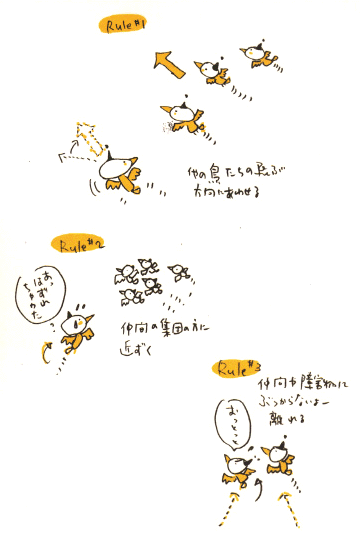 Rule #1
他の鳥たちの飛ぶ
方向にあわせる
Rule #2
あ、はずれ
ちゃった
?
仲間の集団の方に
近ずく
Rule #3
仲間や障害物に
ぶつからないよー
離れる
おっとっと